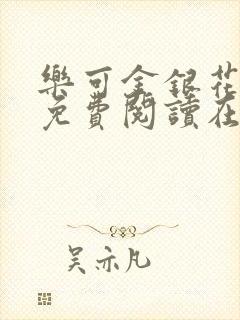 樂可金銀花
免費閱讀在
吴亦凡